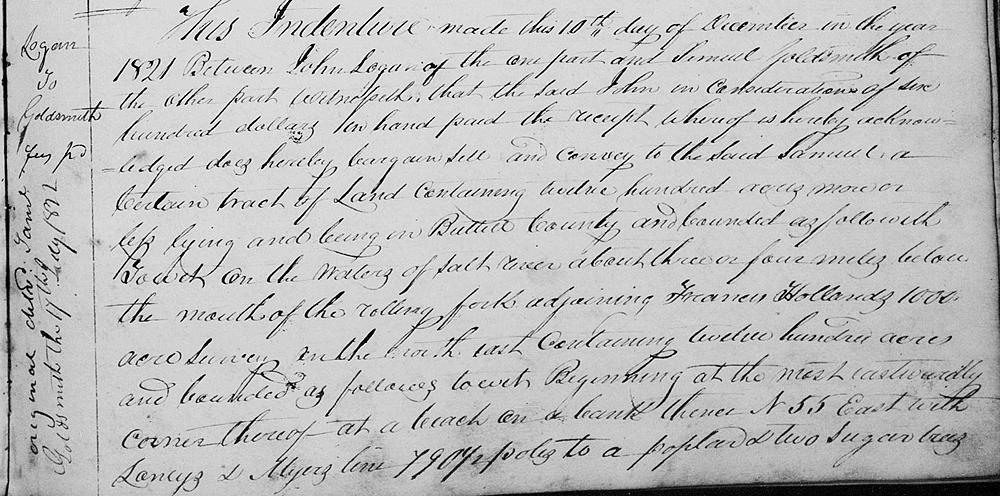 Logan
To
Goldsmith
Fees pd
original deld. Saml
Goldsmith the 17th July 1822
This Indenture made this 10th day of December in the year
1821 Between John Logan of the one part and Simuel Goldsmith of
the other part Witnesseth, that the said John in Consideration of six
hundred dollars In hand paid the receipt whereof is hereby acknow-
-ledged does hereby bargain sell and convey to the said Samuel a
Certain tract of Land Containing twelve hundred acres more or
less lying and being in Bullitt County and bounded as followeth
Towit On the Waters of Salt river about three or four miles below
the mouth of the rolling fork adjoining Francis Hollands 1000
acre Survey on the north east Containing twelve hundred acres
and bounded as follows towit Beginning at the most eastwardly
corner thereof at a beach on a bank thence N 55 East with
& Myers line 790 1/2 poles to a poplar & two Sugar trees